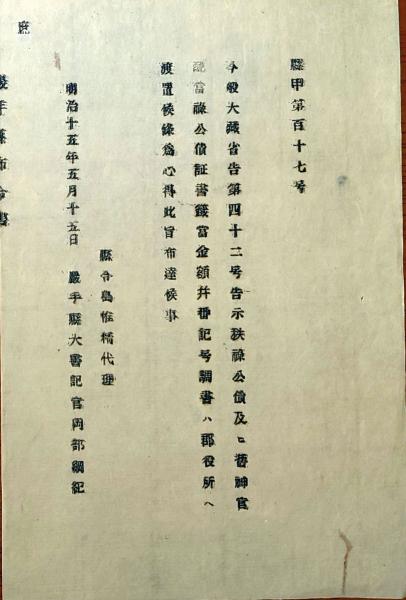 縣甲第百十七号
今般大藏省告第四十二号告示秩祿公債及ヒ舊神官
配當祿公債証書籤當金額并番記号調書ハ郡役所ヘ
渡置候條爲心得此旨布達候事
縣令島惟精代理
明治十五年五月十五日 巖手縣大書記官岡部綱紀
巖手縣布令書
庶